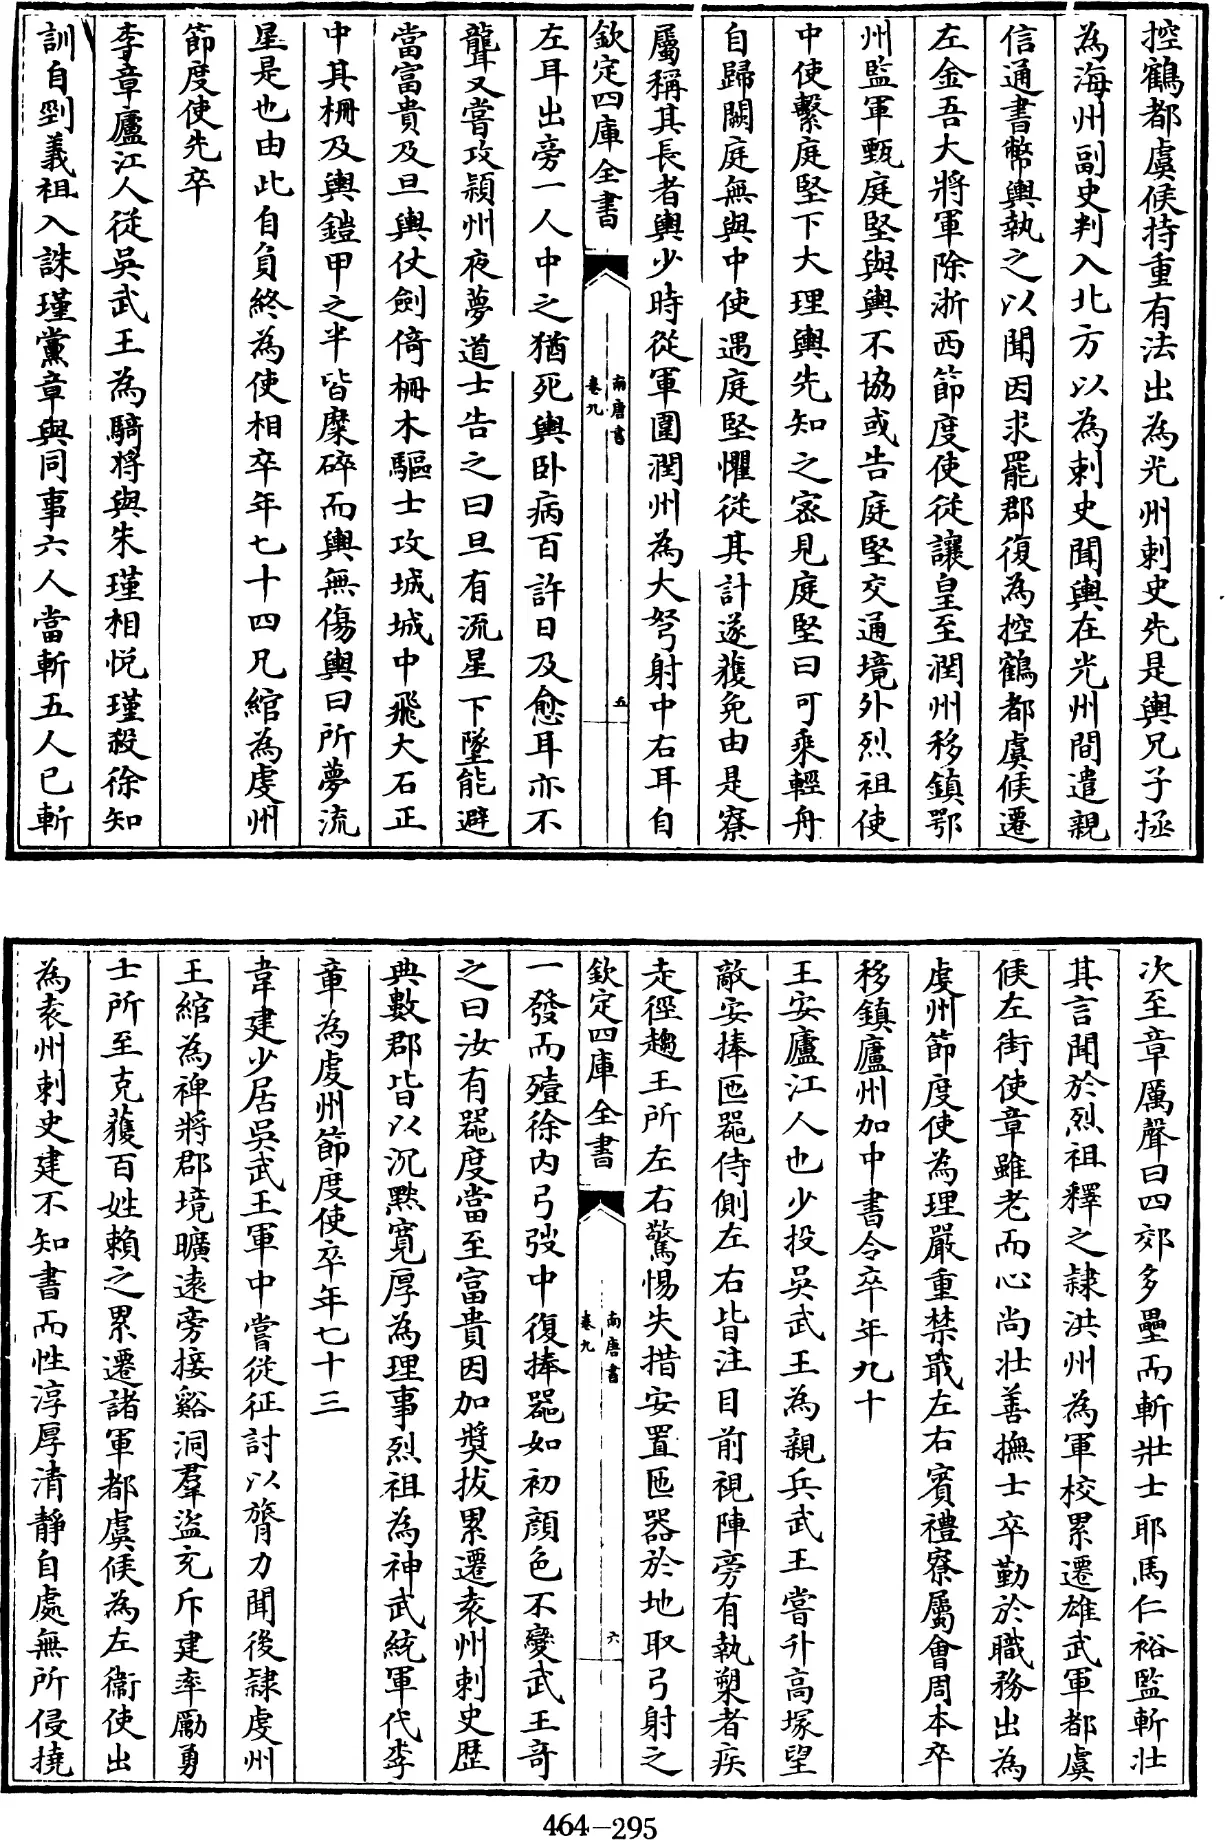 控鶴都虞候持重有法出為光州刺史先是輿兄子拯
為海州副史判入北方以為刺史聞輿在光州間遣親
信通書幣輿執之以聞因求罷郡復為控鶴都虞候遷
左金吾大將軍除浙西節度使從讓皇至潤州移鎮鄂
州監軍甄庭堅與輿不協或告庭堅交通境外烈祖使
中使繫庭堅下大理輿先知之宻見庭堅曰可乘輕舟
自歸闕庭無與中使遇庭堅懼從其計遂獲免由是寮
屬稱其長者輿少時從軍圍潤州為大弩射中右耳自
欽定四庫全書
南唐書
卷九
五
左耳出旁一人中之猶死輿卧病百許日及愈耳亦不
聾又嘗攻潁州夜夢道士告之曰旦有流星下墜能避
當富貴及旦輿仗劍倚柵木驅士攻城城中飛大石正
中其柵及輿鎧甲之半皆糜碎而輿無傷輿曰所夢流
星是也由此自負終為使相卒年七十四凡綰為虔州
節度使先卒
李章廬江人從吳武王為騎將與朱瑾相悦瑾殺徐知
訓自剄義祖入誅瑾黨章與同事六人當斬五人已斬
次至章厲聲曰四郊多壘而斬壯士耶馬仁裕監斬壯
其言聞於烈祖釋之隸洪州為軍校累遷雄武軍都虞
候左街使章雖老而心尚壯善撫士卒勤於職務出為
虔州節度使為理嚴重禁戢左右賓禮寮屬會周本卒
移鎮廬州加中書令卒年九十
王安廬江人也少投吳武王為親兵武王嘗升高塚望
敵安捧匜器侍側左右皆注目前視陣旁有執槊者疾
走徑趨王所左右驚惕失措安置匜器於地取弓射之
欽定四庫全書
南唐書
卷九
六
一發而殪徐内弓弢中復捧器如初顔色不變武王竒
之曰汝有器度當至富貴因加奬拔累遷袁州刺史歴
典數郡皆以沉黙寛厚為理事烈祖為神武統軍代李
章為虔州節度使卒年七十三
韋建少居吳武王軍中嘗從征討以膂力聞後隸虔州
王綰為裨將郡境曠逺旁接谿洞羣盜充斥建率勵勇
士所至克獲百姓賴之累遷諸軍都虞候為左衞使出
為袁州刺史建不知書而性淳厚清靜自處無所侵撓
464-295